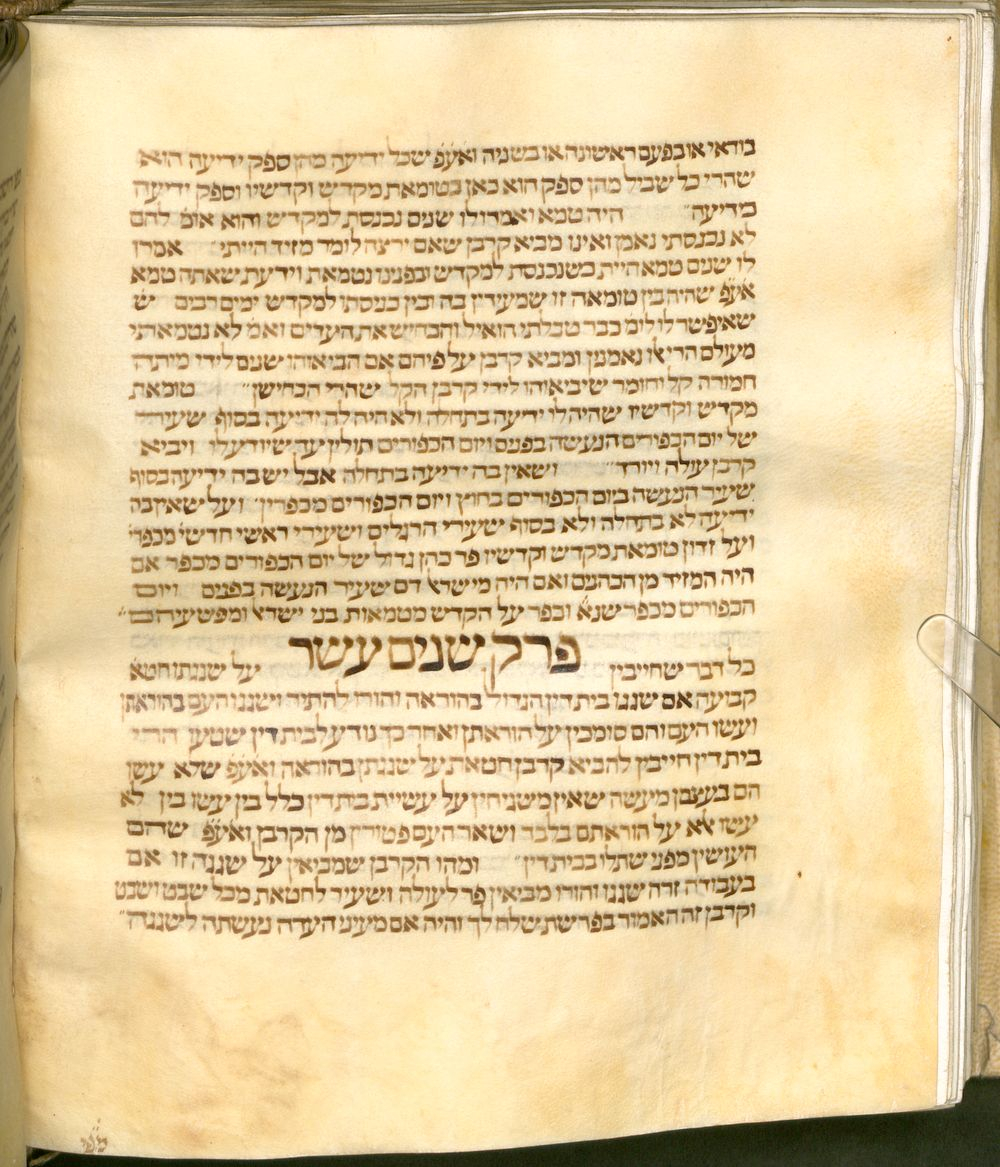 בודאי או בפעם ראשונה או בשניה ואע״פ שכל ידיעה מהן ספק ידיעה הוא
שהרי כל שביל מהן ספק הוא כאן בטומאת מקדש וקדשיו וספק ידיעה
כידיעה״ היה טמא ואמרו לו שנים נכנסת למקדש והוא אומ׳ להם
לא נכנסתי נאמן ואינו מביא קרבן שאם ירצה לומר מזיד הייתי״ אמרו
לו שנים טמא היית כשנכנסת למקדש ובפנינו נטמאת וידעת שאתה טמא
אע״פ שהיה בין טומאה זו שמעידין בה ובין כניסתו למקדש ימים רבים ש
שאיפשר לו לומ׳ כבר טבלתי הואיל והכחיש את העדים ואמ׳ לא נטמאתי
מעולם הרי אלו נאמנין ומביא קרבן על פיהם אם הביאוהו שנים לידי מיתה
חמורה קל וחומר שיביאוהו לידי קרבן הקל שהרי הכחישן״ טומאת
מקדש וקדשיו שהיה לו ידיעה בתחלה ולא היה לה ידיעה בסוף שעירי
של יום הכפורים הנעשה בפנים ויום הכפורים תולין עד שיודע לו ויביא
קרבן עולה ויורד״ ושאין בה ידיעה בתחלה אבל יש בה ידיעה בסוף
שעיר הנעשה ביום הכפורים בחוץ ויום הכפורים מכפרין״ ועל שאין בה
ידיעה לא בתחלה ולא בסוף שעירי הרגלים ושעירי ראשי חדשי׳ מכפרי׳
ועל זדון טומאת מקדש וקדשיו פר כהן גדול של יום הכפורים מכפר אם
היה המזיד מן הכהנים ואם היה מישראל דם שעיר הנעשה בפנים ויום
הכפורים מכפר שנא׳ וכפר על הקדש מטמאות בני ישראל ומפשעיהם״
פרק שנים עשר
כל דבר שחייבין על שגגתו חטא׳
קבועה אם שגגו בית דין הגדול בהוראה והורו להתיר וישגגו העם בהוראתן
ועשו העם והם סומכין על הוראתן ואחר כך נודע לבית דין שטעו הרי
בית דין חייבין להביא קרבן חטאת על שגגתן בהוראה ואע״פ שלא עשו
הם בעצמן מעשה שאין משגיחין על עשיית בית דין כלל בין עשו בין לא
עשו אלא על הוראתם בלבד ושאר העם פטורין מן הקרבן ואע״פ שהם
העושין מפני שתלו בבית דין״ ומהו הקרבן שמביאין על שגגה זו אם
בעבודה זרה שגגו והורו מביאין פר לעולה ושעיר לחטאת מכל שבט ושבט
וקרבן זה האמור בפרשת שלח לך והיה אם מעיני העדה נעשתה לשגגה״